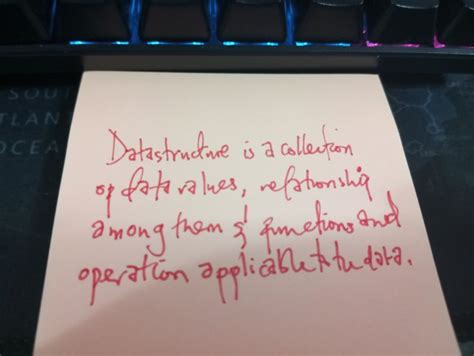 SOU
ATLAN
OCEA
Datastructure is a collection
of data values, relationship
among them & functions and
operation applicable to the data.